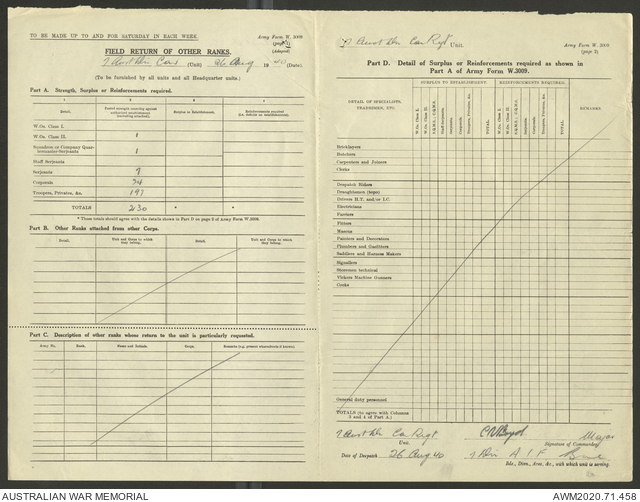 TO BE MADE UP TO AND FOR SATURDAY IN EACH WEEK.
Army Form W. 3009
(page 1)
(Adapted)
FIELD RETURN OF OTHER RANKS.
7 Aust Div Cav (Unit) 26 Aug 1940 (Date).
(To be furnished by all units and all Headquarter units.)
Part A. Strength, Surplus or Reinforcements required.
1 2 3 4
Detail.
Surplus to Establishment.
Reinforcements required
W.Os. Class I.
W.Os. Class II. 1
Squadron or Company Quar-
termaster-Serjeants 1
Staff Serjeants
Serjeants 7
Corporals 24
Troopers, Privates, &c. 197
TOTALS 230 * *
* These totals should agree with the details shown in Part D on page 2 of Army Form W.3009.
Part B. Other Ranks attached from other Corps.
Detail. Unit and Corps to which they belong. Detail. Unit and Corps to which they belong.
Part C. Description of other ranks whose return to the unit is particularly requested.
Army No. Rank. Name and Initials. Corps. Remarks (e.g. present whereabouts if known).
7 Aust Div Cav Regt Unit.
Army Form W. 3009
(page 2)
Part D. Detail of Surplus or Reinforcements required as shown in
Part A of Army Form W.3009.
DETAIL OF SPECIALISTS,
TRADESMEN, ETC.
SURPLUS TO ESTABLISHMENT.
REINFORCEMENTS REQUIRED.
REMARKS
W.Os. Class I.
W.Os. Class II.
Staff-Serjeants
Serjeants
Corporals
Troopers, Privates, &c.
TOTAL
TOTAL
Bricklayers
Butchers
Carpenters and Joiners
Clerks
Despatch Riders
Draughtsmen (topo)
Drivers H.T. and/or I.C.
Electricians
Farriers
Fitters
Masons
Painters and Decorators
Plumbers and Gasfitters
Saddlers and Harness Makers
Signallers
Storemen technical
Vickers Machine Gunners
Cooks
General duty personnel
TOTALS (to agree with Columns
3 and 4 of Part A.)
7 Aust Div Cav Regt
Unit.
Major
Signature of Commander.
Date of Despatch 26 Aug 40
7 Div A I F
Bde., Divn., Area, &c., with which unit is serving.
AUSTRALIAN WAR MEMORIAL
AWM2020.71.458